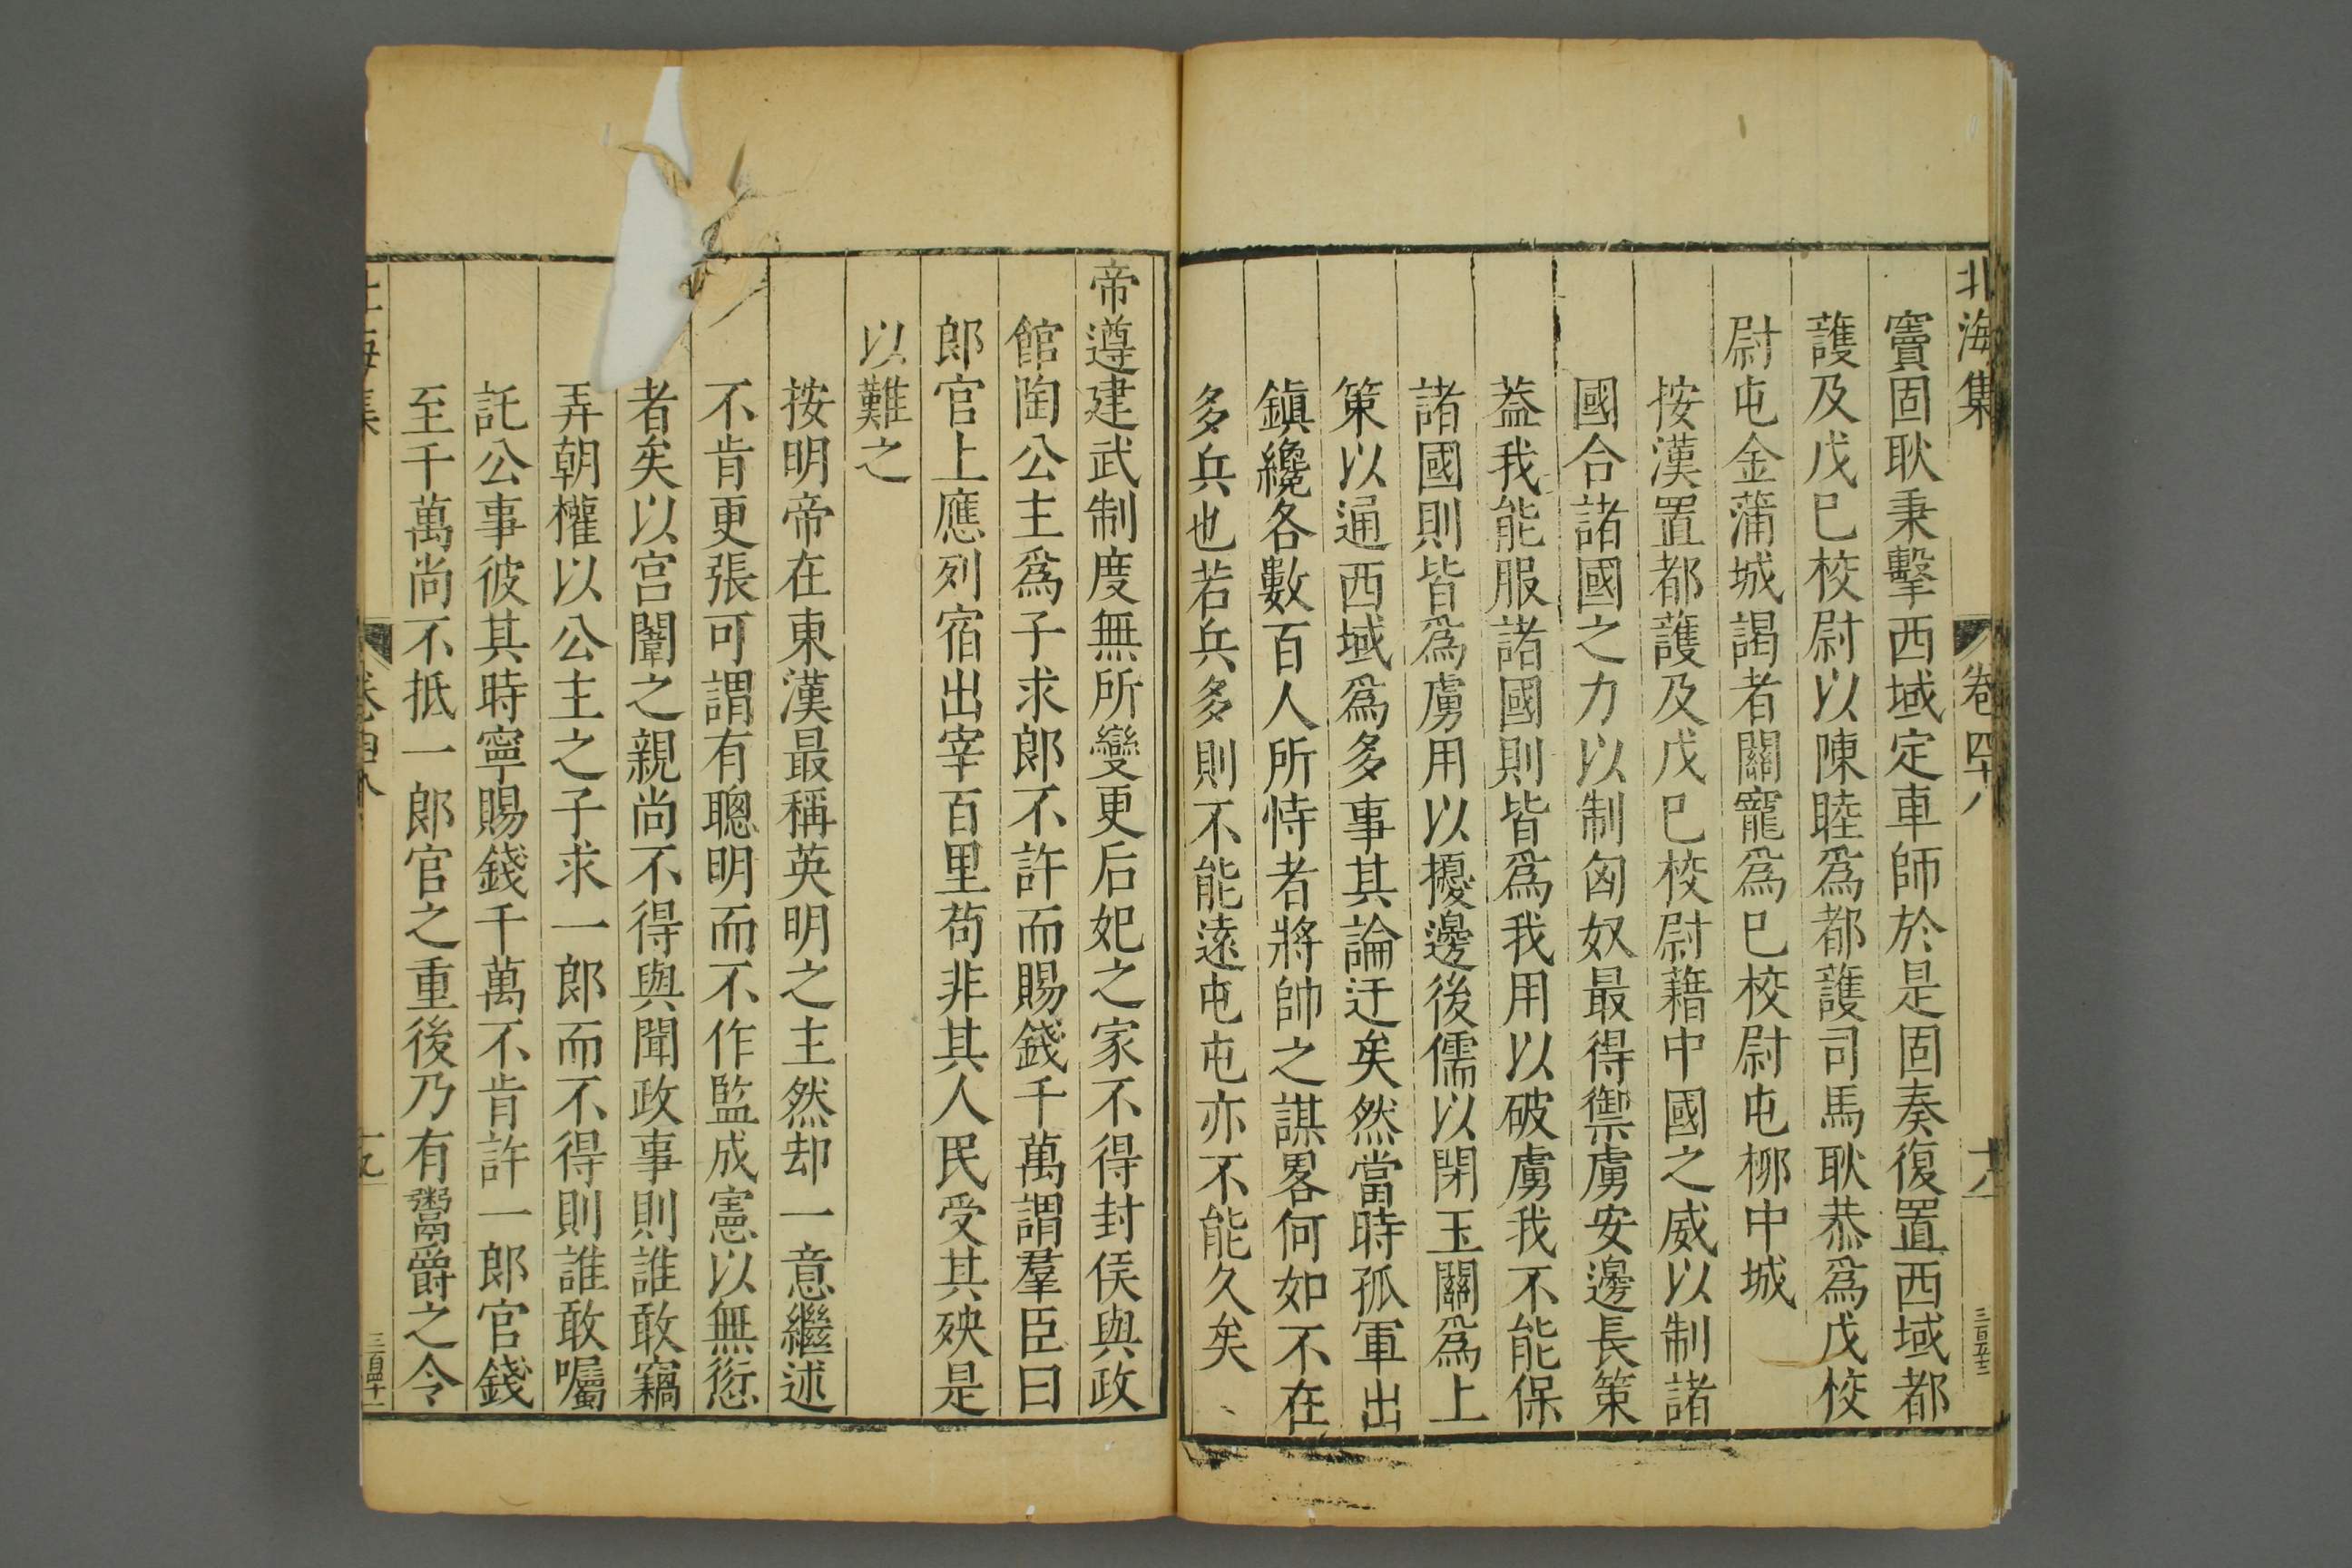 北海集
卷四十八
十八
三百五十三
竇固耿秉擊西域定車師於是固奏復置西域都
護及戊巳校尉以陳睦爲都護司馬耿恭爲戊校
尉屯金蒲城謁者關寵爲巳校尉屯柳中城
按漢置都護及戊巳校尉藉中國之威以制諸
國合諸國之力以制匈奴最得禦虜安邊長策
葢我能服諸國則皆爲我用以破虜我不能保
諸國則皆爲虜用以擾邊後儒以閉玉關爲上
策以通西域爲多事其論迂矣然當時孤軍出
鎮纔各數百人所恃者將帥之謀畧何如不在
多兵也若兵多則不能遠屯屯亦不能久矣
帝遵建武制度無所變更后妃之家不得封侯與政
館陶公主爲子求郎不許而賜錢千萬謂羣臣曰
郎官上應列宿出宰百里苟非其人民受其殃是
以難之
按明帝在東漢最稱英明之主然却一意繼述
不肯更張可謂有聰明而不作監成憲以無愆
者矣以宫闈之親尚不得與聞政事則誰敢竊
弄朝權以公主之子求一郎而不得則誰敢囑
託公事彼其時寧賜錢千萬不肯許一郎官錢
至千萬尚不抵一郎官之重後乃有鬻爵之令
海集
卷四十八
十九
三百四十一